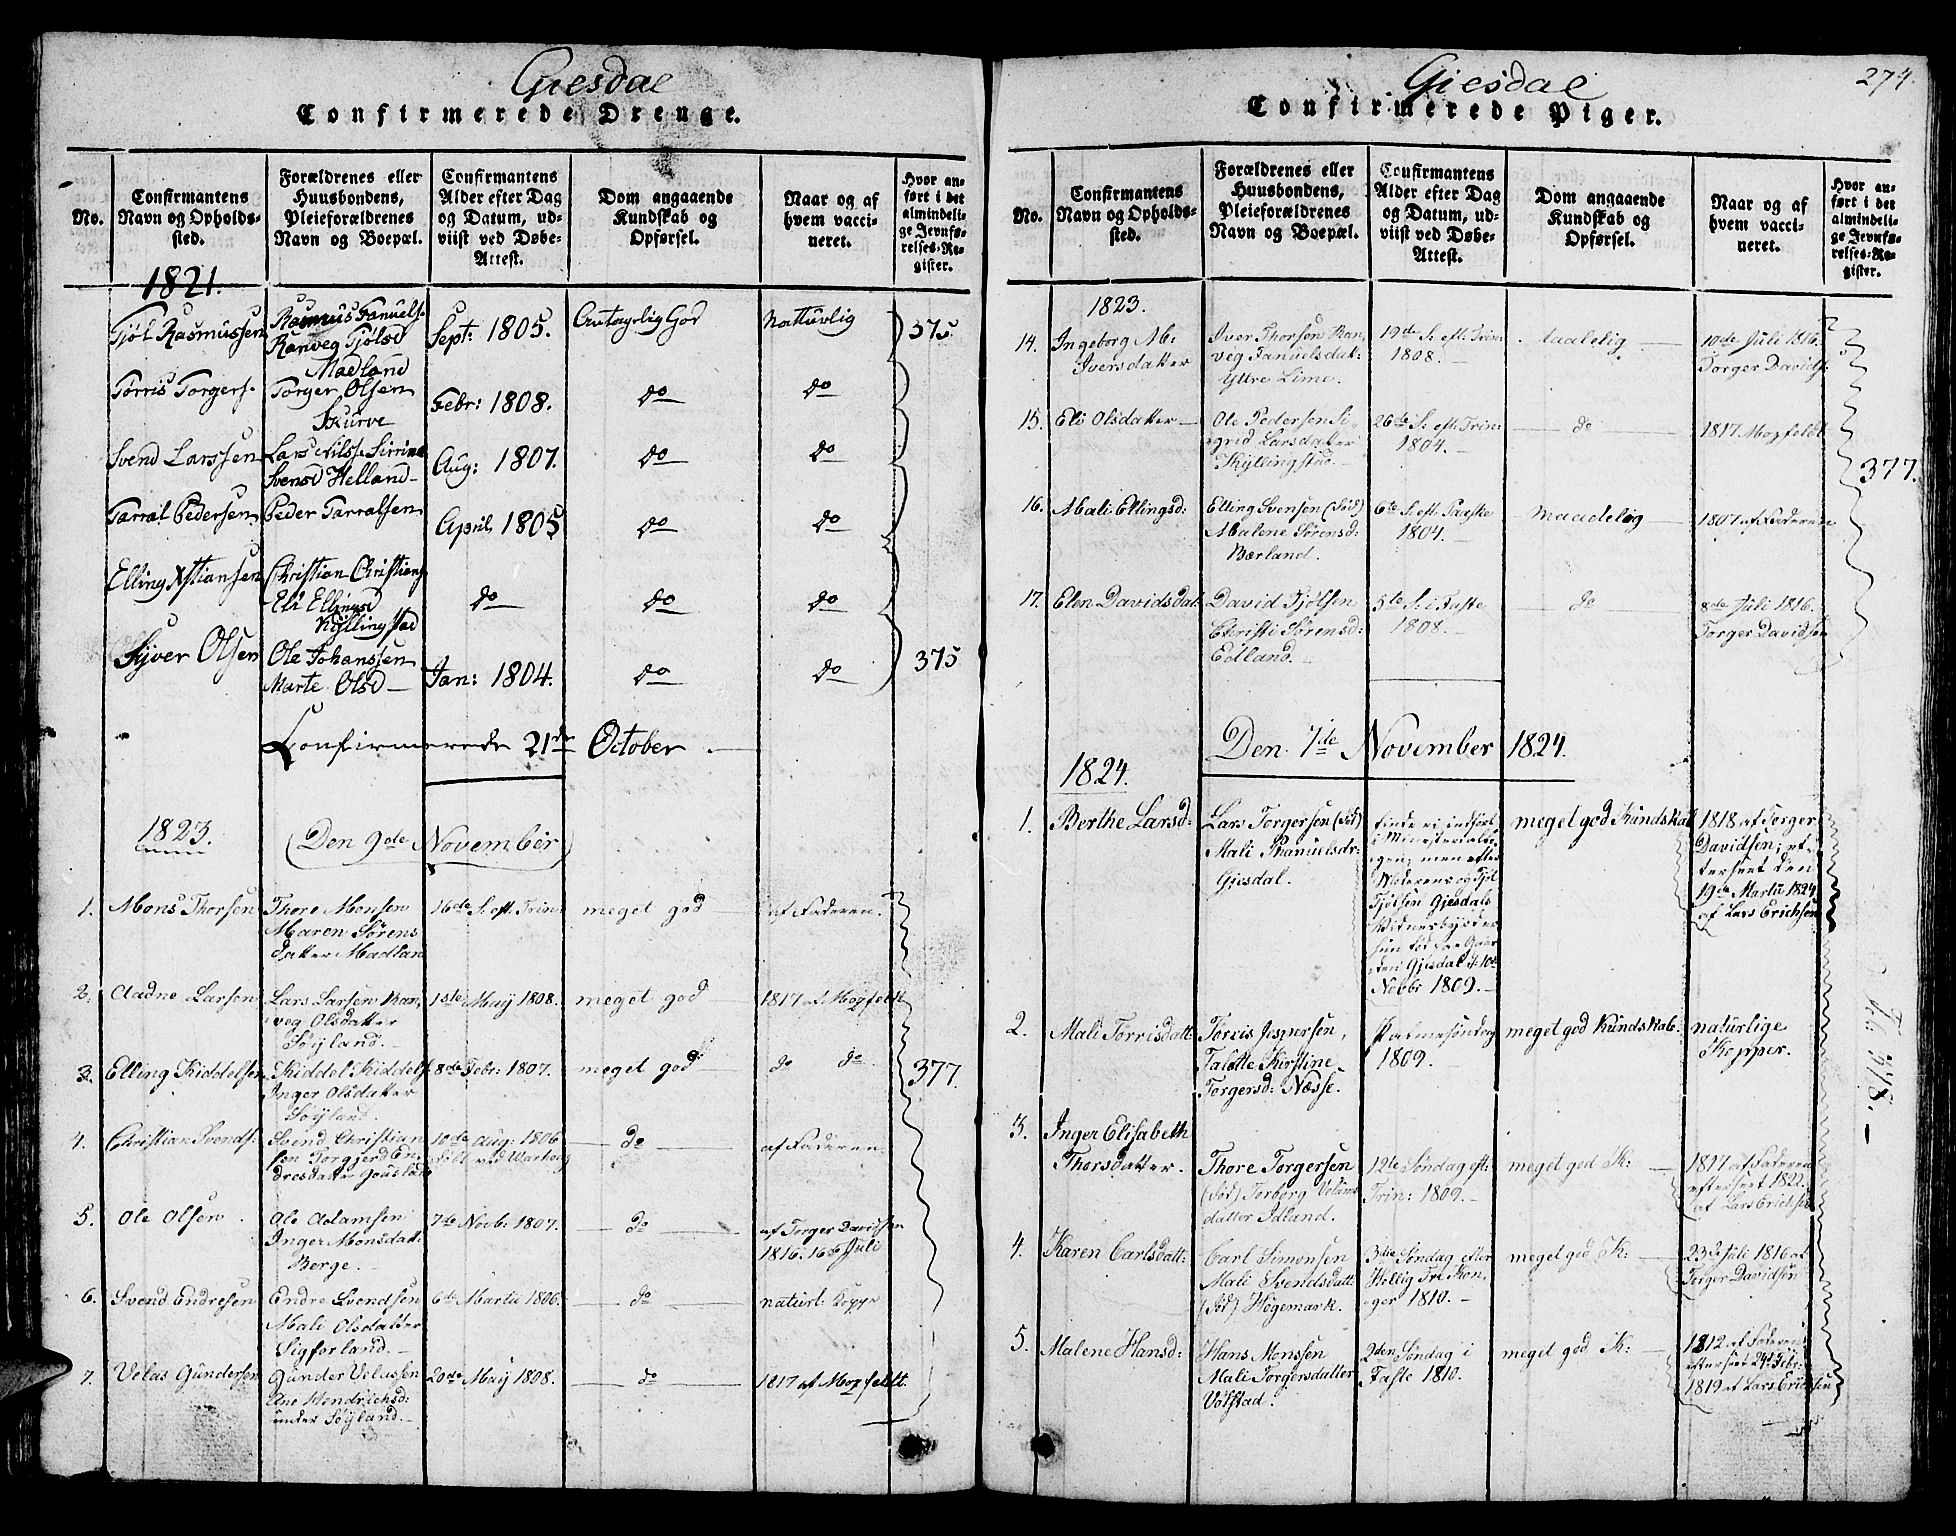 Giesdal
Confirmerede Drenge.
No.
Confirmantens
Navn og Opholds-
sted.
Forældrenes eller
Huusbondens,
Pleieforældrenes
Navn og Boepæl.
Confirmantens
Alder efter Dag
og Datum, ud-
viist ved Døbe-
Attest.
Dom angaaende
Kundskab og
Opførsel.
Naar og af
hvem vacci-
neret.
Hvor an-
ført i det
almindeli-
ge Jevnfø-
relses-Re-
gister.
1821.
Tjöl Rasmussen
Rasmus Fanuels:
Ranveg Tjölsd
Madland
Sept: 1805.
Antagelig God
Natturlig
375
Torris Torgers:
Torger Olsen
Skurve
Febr: 1808.
do
do
Svend Larssen
Lars Nilss: Sirrine
Svensd Helland
Aug: 1807.
do
do
Tarral Pedersen
Peder Tarralsen
April 1805
do
do
Elling Xstiansen
Christian Christians
Eli Ellingsd
Kyllingstad
do
do
do
Syver Olsen
Ole Johanssen
Marte Olsd
Jan: 1804.
do
do
375
Confirmerede 21de October
1823.
(Den 9de November)
1. Mons Thorsen
Thore Monsen
Maren Sörens
datter Madland
16de S. eft. Trin:
meget god
af Faderen.
2. Aadne Larsen
Lars Larsen Ran-
veg Olsdatter
Söyland.
1ste May 1808.
meget god
1817 af Mopfeldt
3. Elling Kiddelsen
Kiddel Kiddels:
Inger Olsdatter
Söyland.
8de Febr: 1807.
meget god
do do
377.
4. Christian Svends:
Svend Christian
sen Torgjerd En
dresdatter
10de Aug: 1806
do
af Faderen
5. Ole Olsen
Ole Adamsen
Inger Monsdatt:
Berge.
7de Novb: 1807.
do
af Torger Davidsen
1816. 16de Juli
6. Svend Endresen
Endre Svendsen
Mali Olsdatter
Sigforland.
6te Martii 1806.
do
naturl: Kopper
7. Velas Gundersen
Gunder Velassen
Ane Hendrichsd:
under Söyland.
20de May 1808.
do
1817 af Mopfeldt.
Giesdal
274.
Confirmerede Piger.
No.
Confirmantens
Navn og Opholds-
sted.
Forældrenes eller
Huusbondens,
Pleieforældrenes
Navn og Boepæl.
Confirmantens
Alder efter Dag
og Datum, ud-
viist ved Døbe-
Attest.
Dom angaaende
Kundskab og
Opførsel.
Naar og af
hvem vacci-
neret.
Hvor an-
ført i det
almindeli-
ge Jevnfø-
relses-Re-
gister.
1823.
14. Ingeborg M:
Iversdatter
Iver Thorsen Ran
veg Fanuelsdat:
Yttre Lime.
19de S. eft. Trin:
1808.
taalelig
10de Juli 1816.
Torger Davids:
15. Eli Olsdatter
Ole Pedersen Si-
grid Larsdatter
Kyllingstad.
26de S. eft. Trin:
1804.
do
1817. Mopfeldt
377.
16. Mali Ellingsd:
Elling Svensen (död)
Malene Sörensd:
Bærland.
6te S. eft. Paaske
1804.
maadelig
1807 af Faderen
17. Elen Davidsdat:
David Tjölsen
Christi Sörensd:
Edland.
5te S. i Faste
1808.
do
8de Juli 1816.
Torger Davidsen
Den 7de November 1824.
1824.
1. Berthe Larsd:
Lars Torgersen (död)
Mali Thanuelsdr:
Gjesdal.
findes ei indfört
i Ministerialbo-
gen; men efter
Moderens og Tjöl
Tjölsen Gjesdals
Vidnesbyrd er
hun född paa Gaar-
den Gjesdal d: 10de
Novbr 1809.
meget god Kundskab
1818 af Torger
Davidsen; ef-
terseet den
19de Martii 1824
af Lars Erichsen
2. Mali Torrisdatt:
Torris Jespersen,
Talette Kirstine
Torgersd: Næsse.
Palmesöndag
1809.
meget god Kundskab.
naturlige
Kopper.
378.
3. Inger Elisabeth
Thorsdatter.
Thore Torgersen
(död) Torborg Velams
datter Idland.
12te Söndag eft:
Trin: 1809.
meget god K:
1817 af Faderen
efterseet 1822.
af Lars Erichsen
4. Karen Carlsdatt:
Carl Simonsen
Mali Svendsdatt
(död) Högemark.
3die Söndag efter
Hellig Tre Kon-
ger 1810.
meget god K:
23de Juli 1816 af
Torger Davidsen
5. Malene Hansd:
Hans Monssen
Mali Torgersdatter
Volstad.
2den Söndag i
Faste 1810.
meget god K:
1812 af Faderen
efterseet 24de Febr:
1819 af Lars Erichsen